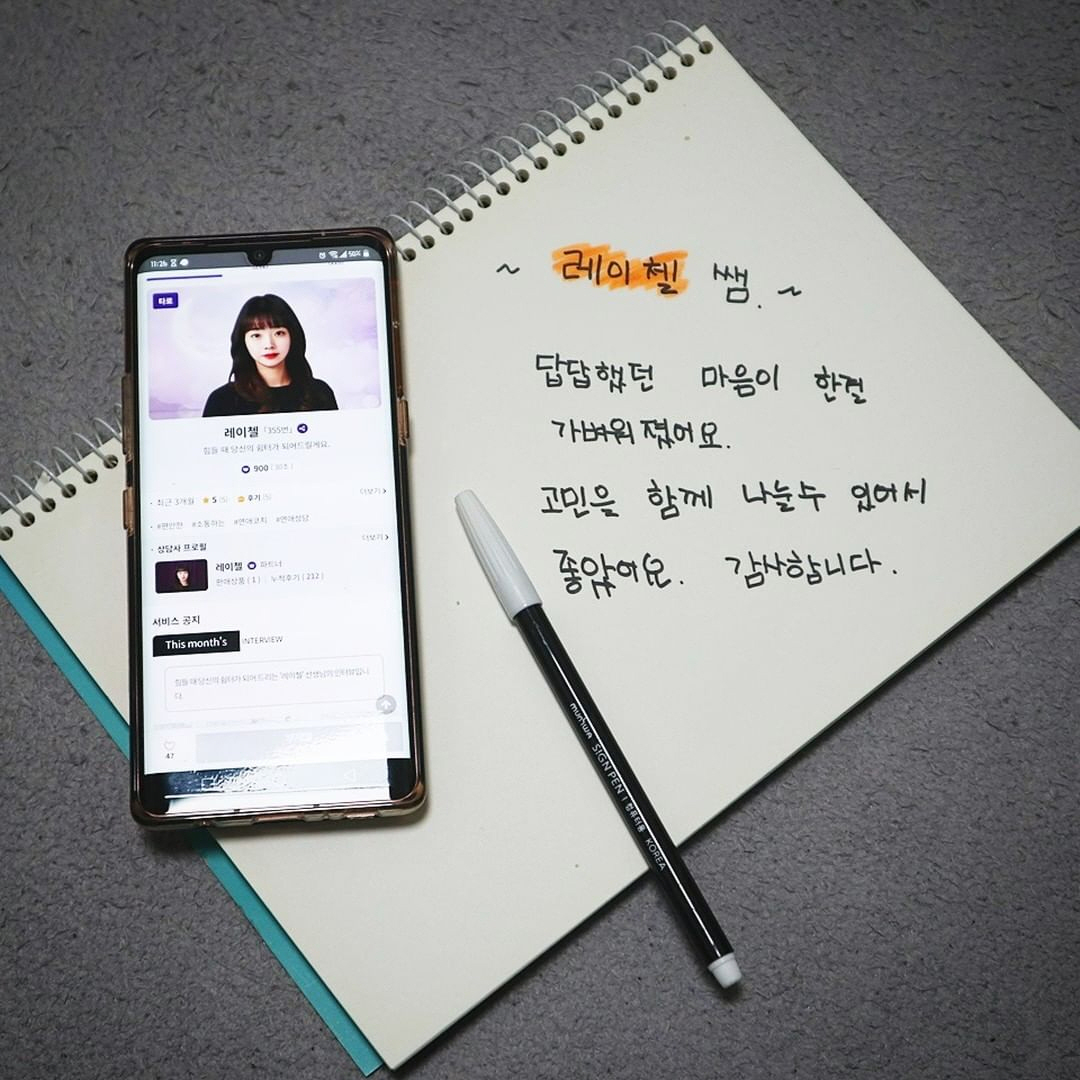 11:26
50%
타로
레이첼 「355번」
힘들 때 당신의 쉼터가 되어드릴게요.
900 (30초)
최근 3개월 5 (5) 후기 (5) 더보기 >
#편안한 #소통하는 #연애코치 #연애상담
상담사 프로필 더보기 >
레이첼 파트너
판매상품 ( 1 ) 누적후기 ( 212 )
서비스 공지
This month's INTERVIEW
힘들 때 당신의 쉼터가 되어 드리는 '레이첼' 선생님의 인터뷰입니
다.
47
~ 레이첼 쌤. ~
답답했던 마음이 한결
가벼워졌어요.
고민을 함께 나눌수 있어서
좋았어요. 감사합니다.
munhwa SIGN PEN 컴퓨터용 KOREA